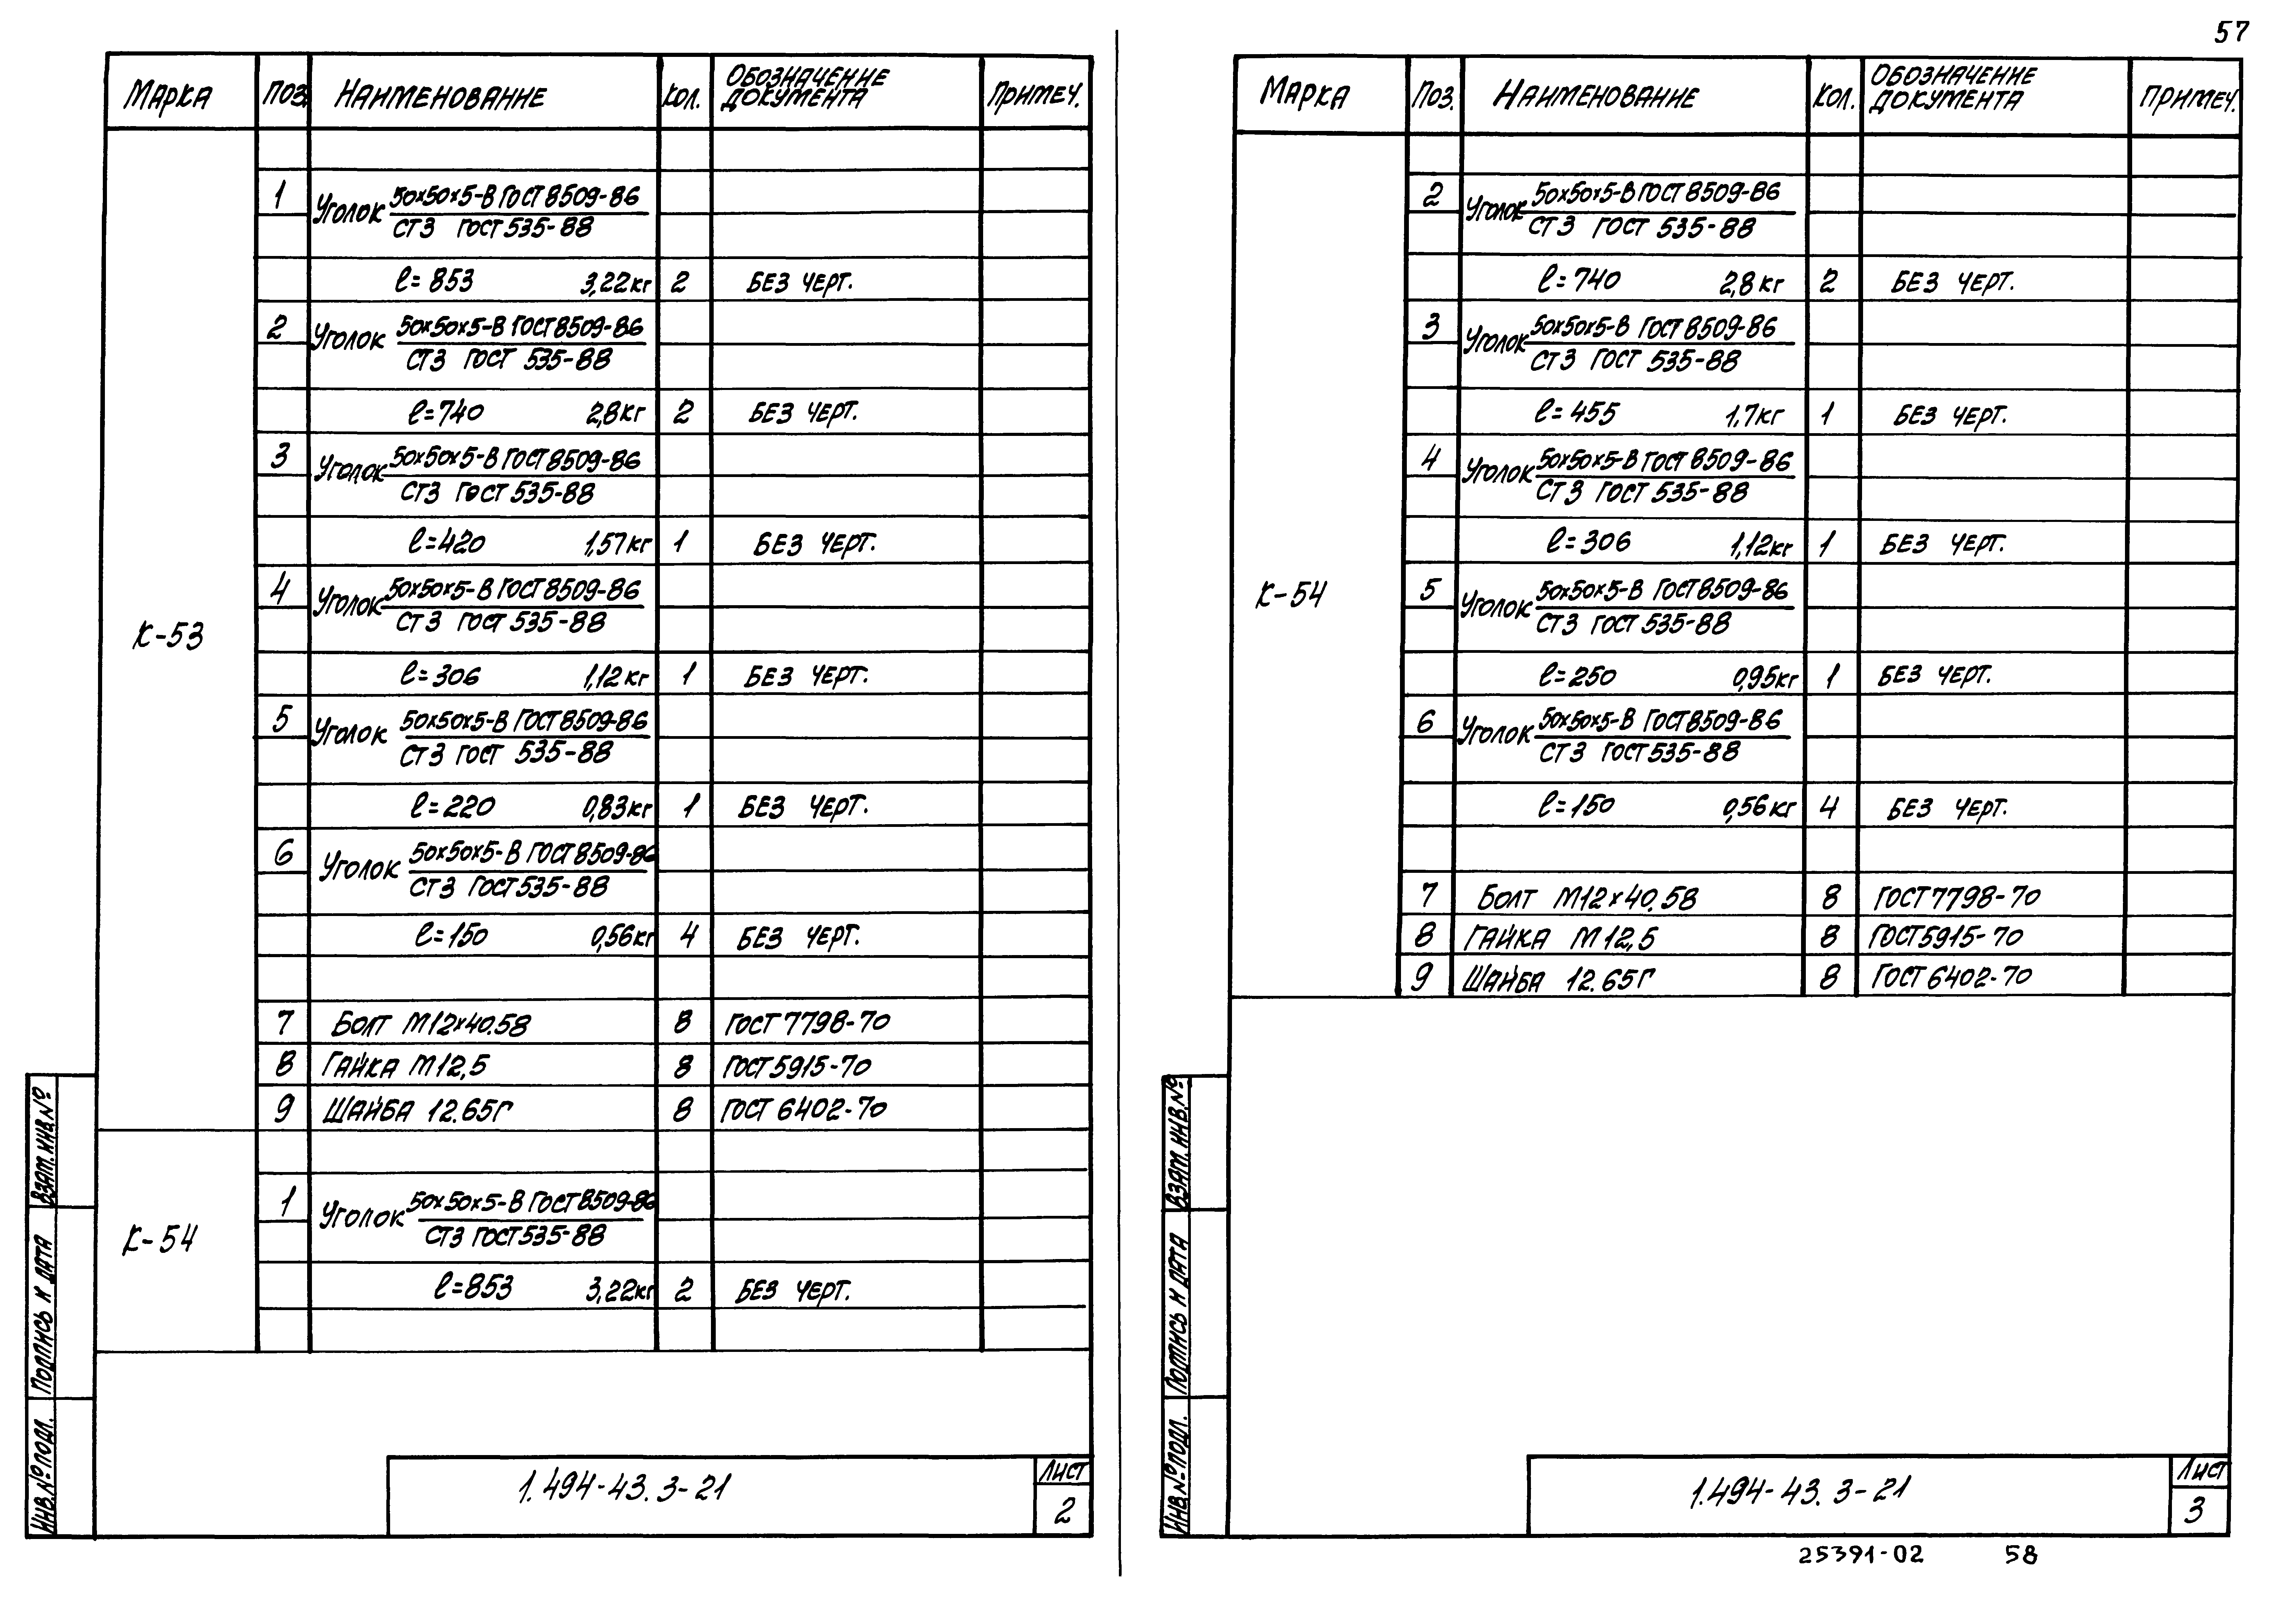 57
МАРКА ПОЗ. НАИМЕНОВАНИЕ КОЛ. ОБОЗНАЧЕНИЕ ДОКУМЕНТА ПРИМЕЧ.
К-53
1 УГОЛОК 50х50х5-В ГОСТ 8509-86
СТ3 ГОСТ 535-88
ℓ=853 3,22кг 2 БЕЗ ЧЕРТ.
2 УГОЛОК 50х50х5-В ГОСТ 8509-86
СТ3 ГОСТ 535-88
ℓ=740 2,8кг 2 БЕЗ ЧЕРТ.
3 УГОЛОК 50х50х5-В ГОСТ 8509-86
СТ3 ГОСТ 535-88
ℓ=420 1,57кг 1 БЕЗ ЧЕРТ.
4 УГОЛОК 50х50х5-В ГОСТ 8509-86
СТ3 ГОСТ 535-88
ℓ=306 1,12кг 1 БЕЗ ЧЕРТ.
5 УГОЛОК 50х50х5-В ГОСТ 8509-86
СТ3 ГОСТ 535-88
ℓ=220 0,83кг 1 БЕЗ ЧЕРТ.
6 УГОЛОК 50х50х5-В ГОСТ 8509-86
СТ3 ГОСТ 535-88
ℓ=150 0,56кг 4 БЕЗ ЧЕРТ.
7 БОЛТ М12х40.58 8 ГОСТ 7798-70
8 ГАЙКА М12,5 8 ГОСТ 5915-70
9 ШАЙБА 12.65Г 8 ГОСТ 6402-70
К-54
1 УГОЛОК 50х50х5-В ГОСТ 8509-86
СТ3 ГОСТ 535-88
ℓ=853 3,22кг 2 БЕЗ ЧЕРТ.
ВЗАМ.ИНВ.№
ПОДПИСЬ И ДАТА
ИНВ.№ ПОДЛ.
1.494-43.3-21
ЛИСТ
2
МАРКА ПОЗ. НАИМЕНОВАНИЕ КОЛ. ОБОЗНАЧЕНИЕ ДОКУМЕНТА ПРИМЕЧ.
К-54
2 УГОЛОК 50х50х5-В ГОСТ 8509-86
СТ3 ГОСТ 535-88
ℓ=740 2,8кг 2 БЕЗ ЧЕРТ.
3 УГОЛОК 50х50х5-В ГОСТ 8509-86
СТ3 ГОСТ 535-88
ℓ=455 1,7кг 1 БЕЗ ЧЕРТ.
4 УГОЛОК 50х50х5-В ГОСТ 8509-86
СТ3 ГОСТ 535-88
ℓ=306 1,12кг 1 БЕЗ ЧЕРТ.
5 УГОЛОК 50х50х5-В ГОСТ 8509-86
СТ3 ГОСТ 535-88
ℓ=250 0,95кг 1 БЕЗ ЧЕРТ.
6 УГОЛОК 50х50х5-В ГОСТ 8509-86
СТ3 ГОСТ 535-88
ℓ=150 0,56кг 4 БЕЗ ЧЕРТ.
7 БОЛТ М12х40.58 8 ГОСТ 7798-70
8 ГАЙКА М12,5 8 ГОСТ 5915-70
9 ШАЙБА 12.65Г 8 ГОСТ 6402-70
ВЗАМ.ИНВ.№
ПОДПИСЬ И ДАТА
ИНВ.№ ПОДЛ.
1.494-43.3-21
ЛИСТ
3
25391-02 58